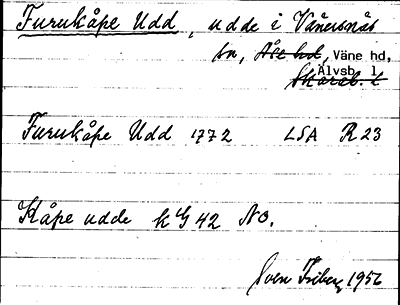 Furukåpe Udd, udde i Vänersnäs
sn, Åse hd, Väne hd,
Skarab. l Älvsb. l.
Furukåpe Udd 1772 LSA R 23
Kåpe udde 42 NO.
Sven Friberg 1956